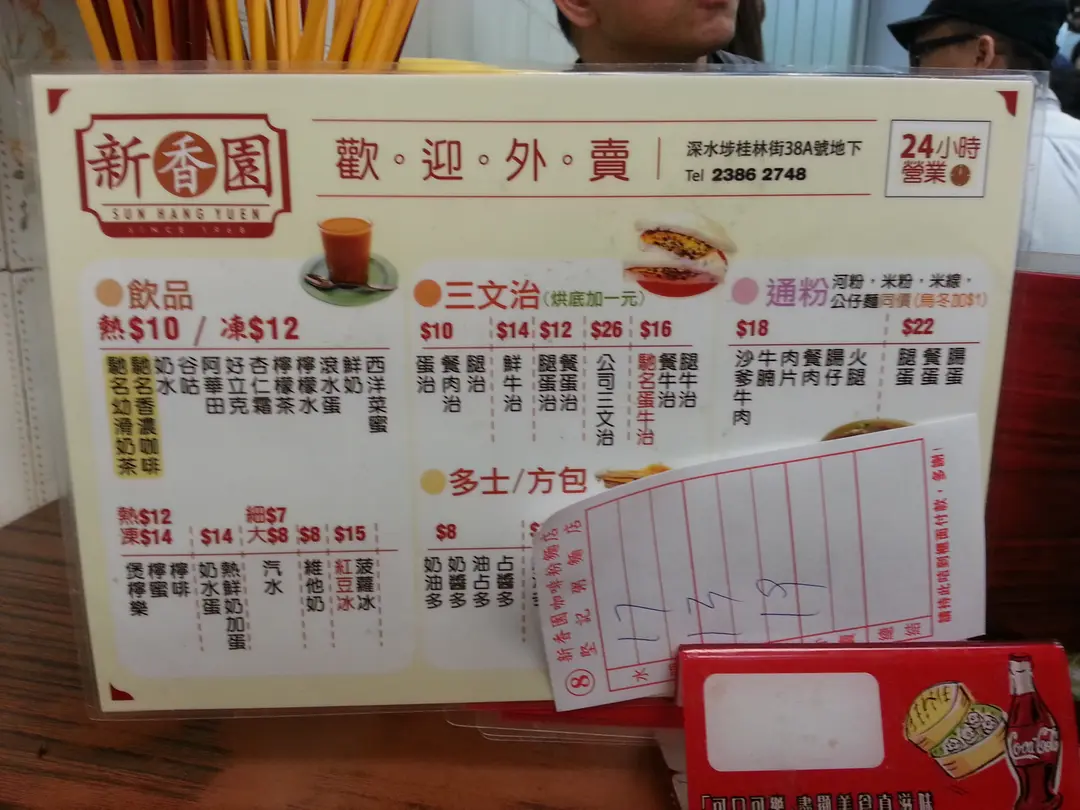 新香園
SUN HANG YUEN
SINCE 1968
歡。迎。外。賣
深水埗桂林街38A號地下
Tel 2386 2748
24小時
營業
飲品
熱$10 / 凍$12
馳名幼滑奶茶
馳名香濃咖啡
奶水
谷咕
阿華田
好立克
杏仁霜
檸檬茶
檸檬水
滾水蛋
鮮奶
西洋菜蜜
熱$12
凍$14
煲檸樂
檸蜜
檸啡
$14
奶水蛋
熱鮮奶加蛋
細$7
大$8
汽水
$8
維他奶
$15
紅豆冰
菠蘿冰
三文治(烘底加一元)
$10
蛋治
餐肉治
腿治
$14
鮮牛治
$12
腿蛋治
餐蛋治
$26
公司三文治
$16
馳名蛋牛治
餐牛治
腿牛治
多士/方包
$8
奶油多
奶醬多
油占多
占醬多
通粉
河粉，米粉，米線，
公仔麵同價(烏冬加$1)
$18
沙爹牛肉
牛腩
肉片
餐肉
腸仔
火腿
$22
腿蛋
餐蛋
腸蛋
新香園咖啡粉麵店
堅記粥麵店
⑧
水
總結
17
13
18
請持此咭到櫃面付款，多謝！
Coca-Cola
「可口可樂」盡顯美食真滋味